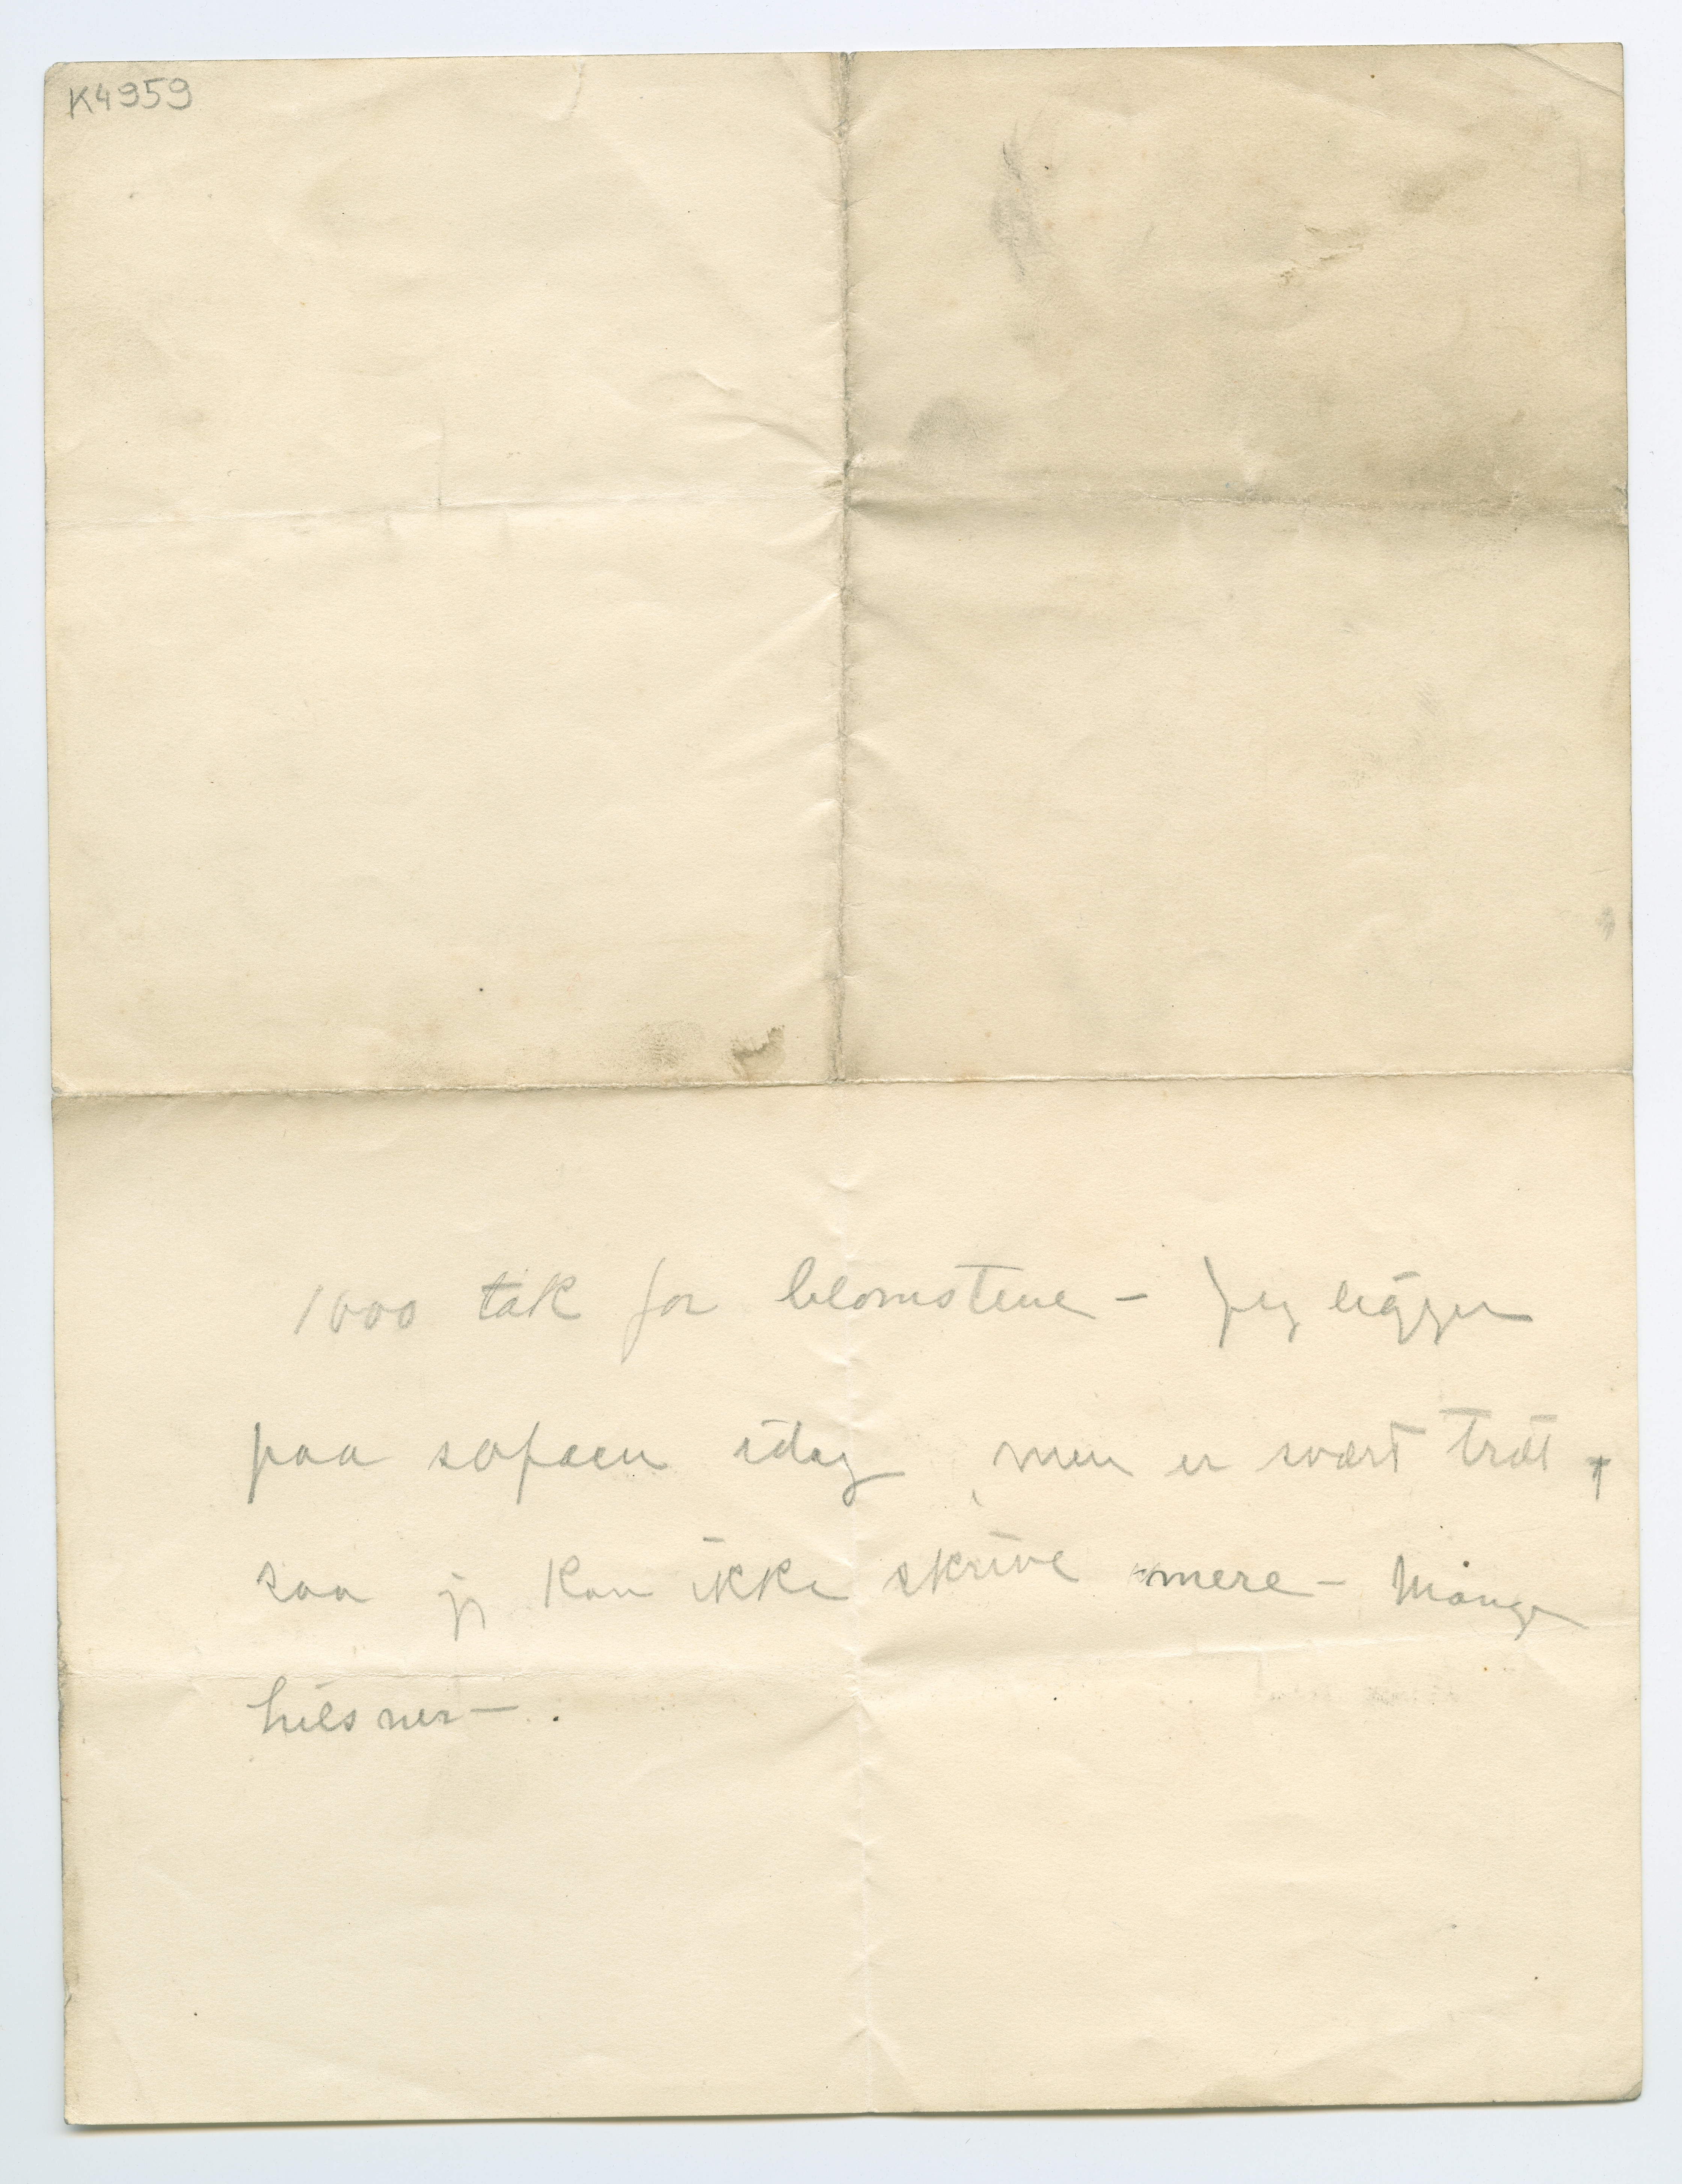 K4959
1000 tak for blomsterne – Jeg ligger
paa sofaen idag, men er svært træt,
saa jeg kan ikke skrive mere – Mange
hilsner –.